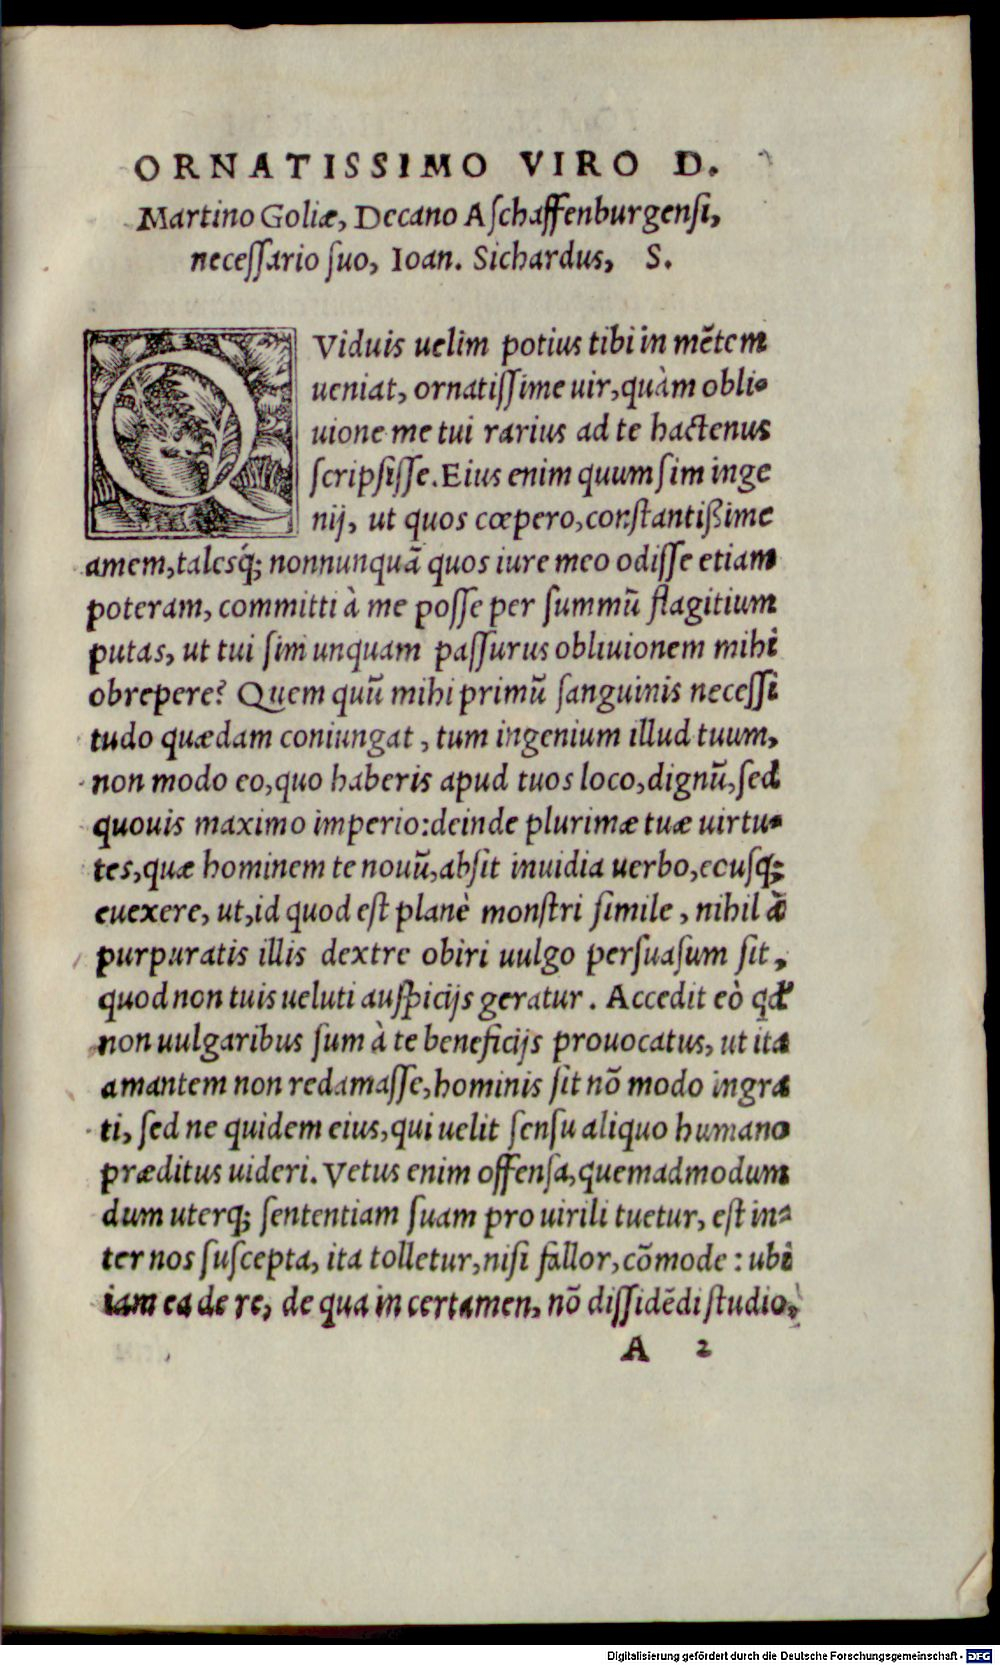 ORNATISSIMO VIRO D.
Martino Goliæ, Decano Aſchaffenburgenſi,
neceſſario ſuo, Ioan. Sichardus, S.
QViduis uelim potius tibi in mẽtem
ueniat, ornatiſſime uir, quàm obli-
uione me tui rarius ad te hactenus
ſcripſiſſe. Eius enim quum ſim inge
nij, ut quos cœpero, conſtantißime
amem, talesq́; nonnunquã quos iure meo odiſſe etiam
poteram, committi à me poſſe per ſummũ flagitium
putas, ut tui ſim unquam paſſurus obliuionem mihi
obrepere? Quem quũ mihi primũ ſanguinis neceſſi
tudo quædam coniungat, tum ingenium illud tuum,
non modo eo, quo haberis apud tuos loco, dignũ, ſed
quouis maximo imperio: deinde plurimæ tuæ uirtu-
tes, quæ hominem te nouũ, abſit inuidia uerbo, eouſq;
euexere, ut, id quod eſt planè monſtri ſimile, nihil ã
purpuratis illis dextre obiri uulgo perſuaſum ſit,
quod non tuis ueluti auſpicijs geratur. Accedit eò qđ
non uulgaribus ſum à te beneficijs prouocatus, ut ita
amantem non redamaſſe, hominis ſit nõ modo ingra
ti, ſed ne quidem eius, qui uelit ſenſu aliquo humano
præditus uideri. Vetus enim offenſa, quemadmodum
dum uterq; ſententiam ſuam pro uirili tuetur, eſt in-
ter nos ſuſcepta, ita tolletur, niſi fallor, cõmode: ubi
iam ea de re, de qua in certamen, nõ diſſidẽdi ſtudio,
A 2
Digitalisierung gefördert durch die Deutsche Forschungsgemeinschaft - DFG